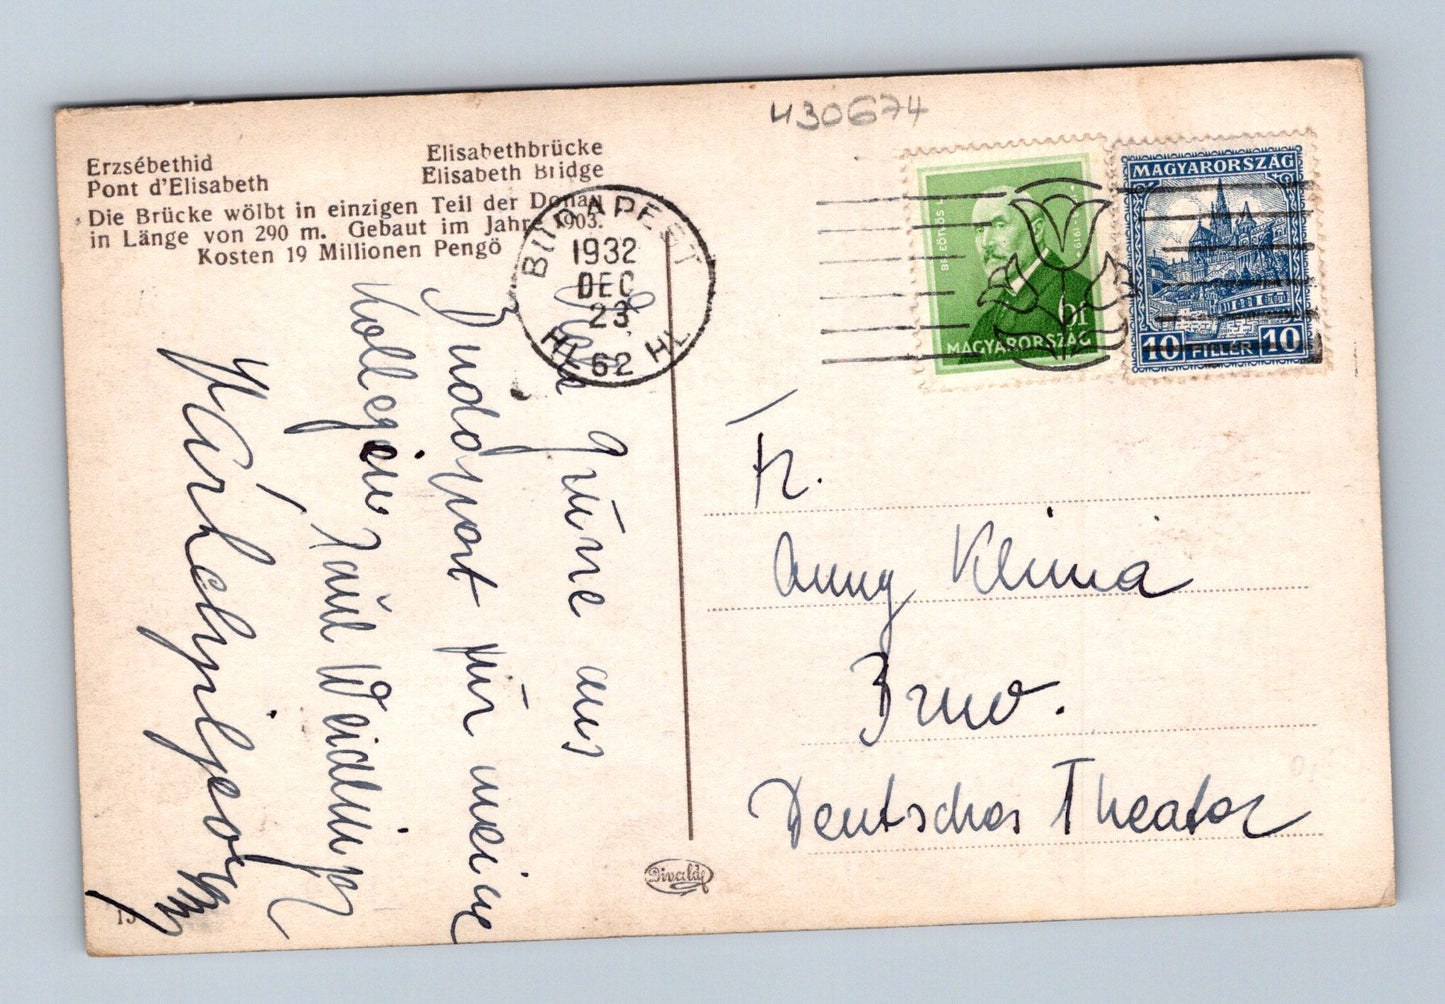 430674
Erzsébethid
Elisabethbrücke
Pont d'Elisabeth
Elisabeth Bridge
Die Brücke wölbt in einzigen Teil der Donau
in Länge von 290 m. Gebaut im Jahre 1903.
Kosten 19 Millionen Pengö
BUDAPEST
1932
DEC
23
HL 62 HL
1919
6f
MAGYARORSZÁG
MAGYARORSZÁG
10 FILLÉR 10
grüne aus
Budapest für meine
Kollegin
Fr.
Anny Klima
Brno.
Deutsches Theater
Divald